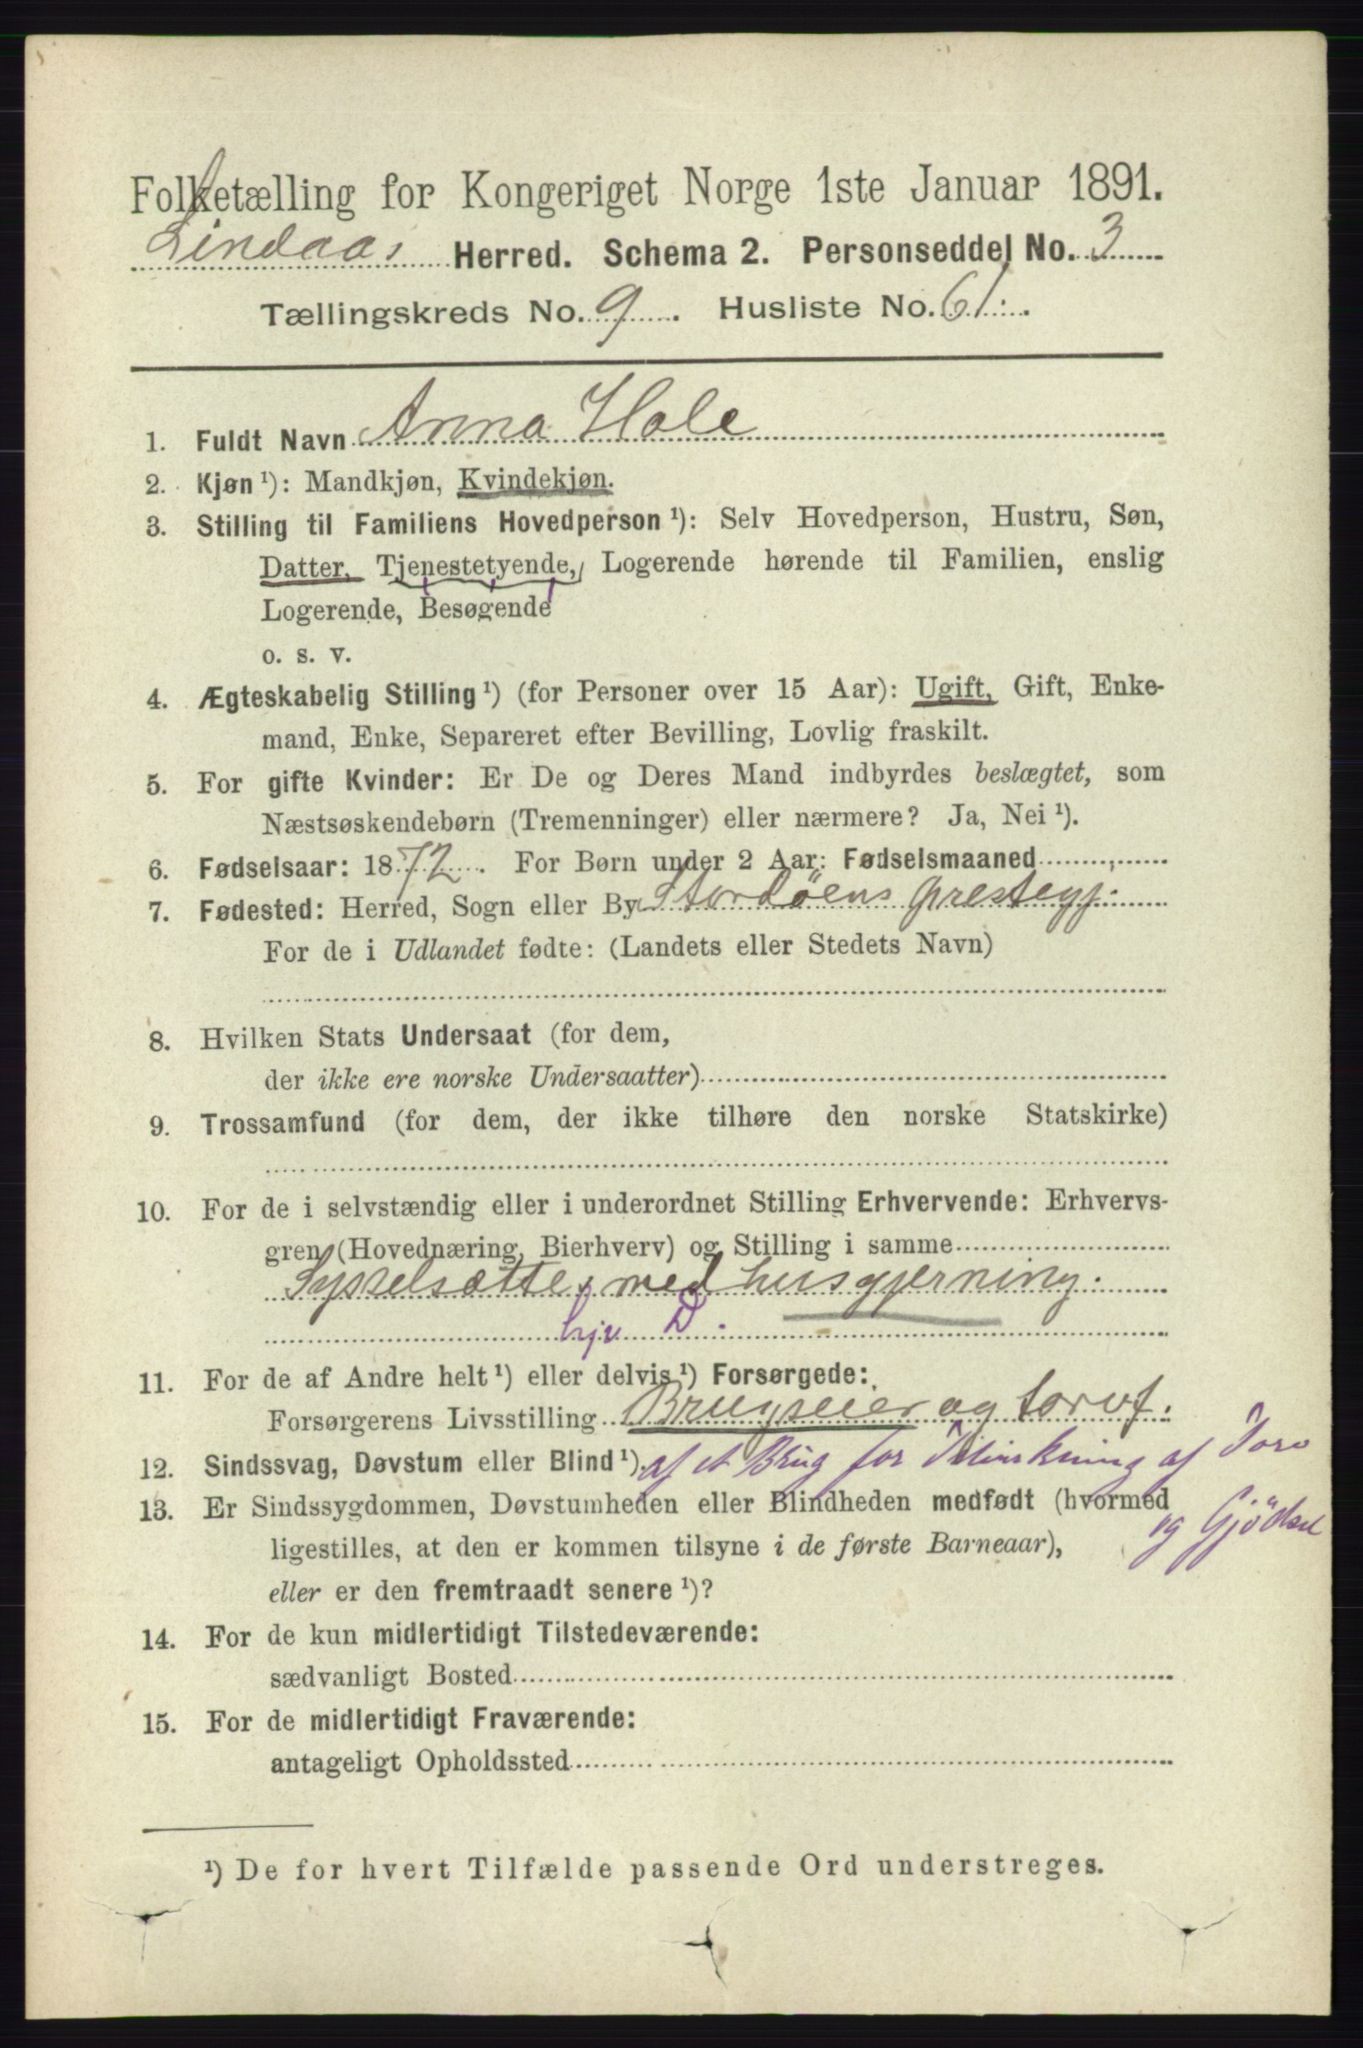 Folketælling for Kongeriget Norge 1ste Januar 1891.
Lindaas Herred. Schema 2. Personseddel No. 3
Tællingskreds No. 9. Husliste No. 61.
1. Fuldt Navn Anna Hole
2. Kjøn ¹): Mandkjøn, Kvindekjøn.
3. Stilling til Familiens Hovedperson ¹): Selv Hovedperson, Hustru, Søn,
Datter, Tjenestetyende, Logerende hørende til Familien, enslig
Logerende, Besøgende
o. s. v.
4. Ægteskabelig Stilling ¹) (for Personer over 15 Aar): Ugift, Gift, Enke-
mand, Enke, Separeret efter Bevilling, Lovlig fraskilt.
5. For gifte Kvinder: Er De og Deres Mand indbyrdes beslægtet, som
Næstsøskendebørn (Tremenninger) eller nærmere? Ja, Nei ¹).
6. Fødselsaar: 1872. For Børn under 2 Aar: Fødselsmaaned
7. Fødested: Herred, Sogn eller By Stordöens prestegj.
For de i Udlandet fødte: (Landets eller Stedets Navn)
8. Hvilken Stats Undersaat (for dem,
der ikke ere norske Undersaatter)
9. Trossamfund (for dem, der ikke tilhøre den norske Statskirke)
10. For de i selvstændig eller i underordnet Stilling Erhvervende: Erhvervs-
gren (Hovednæring, Bierhverv) og Stilling i samme
Sysselsættes med husgjerning.
hjv D.
11. For de af Andre helt ¹) eller delvis ¹) Forsørgede:
Forsørgerens Livsstilling Brugseier og torvf.
12. Sindssvag, Døvstum eller Blind ¹). af et Brug for Tilvirkning af Torv
13. Er Sindssygdommen, Døvstumheden eller Blindheden medfødt (hvormed og Gjödsel
ligestilles, at den er kommen tilsyne i de første Barneaar),
eller er den fremtraadt senere ¹)?
14. For de kun midlertidigt Tilstedeværende:
sædvanligt Bosted
15. For de midlertidigt Fraværende:
antageligt Opholdssted
¹) De for hvert Tilfælde passende Ord understreges.